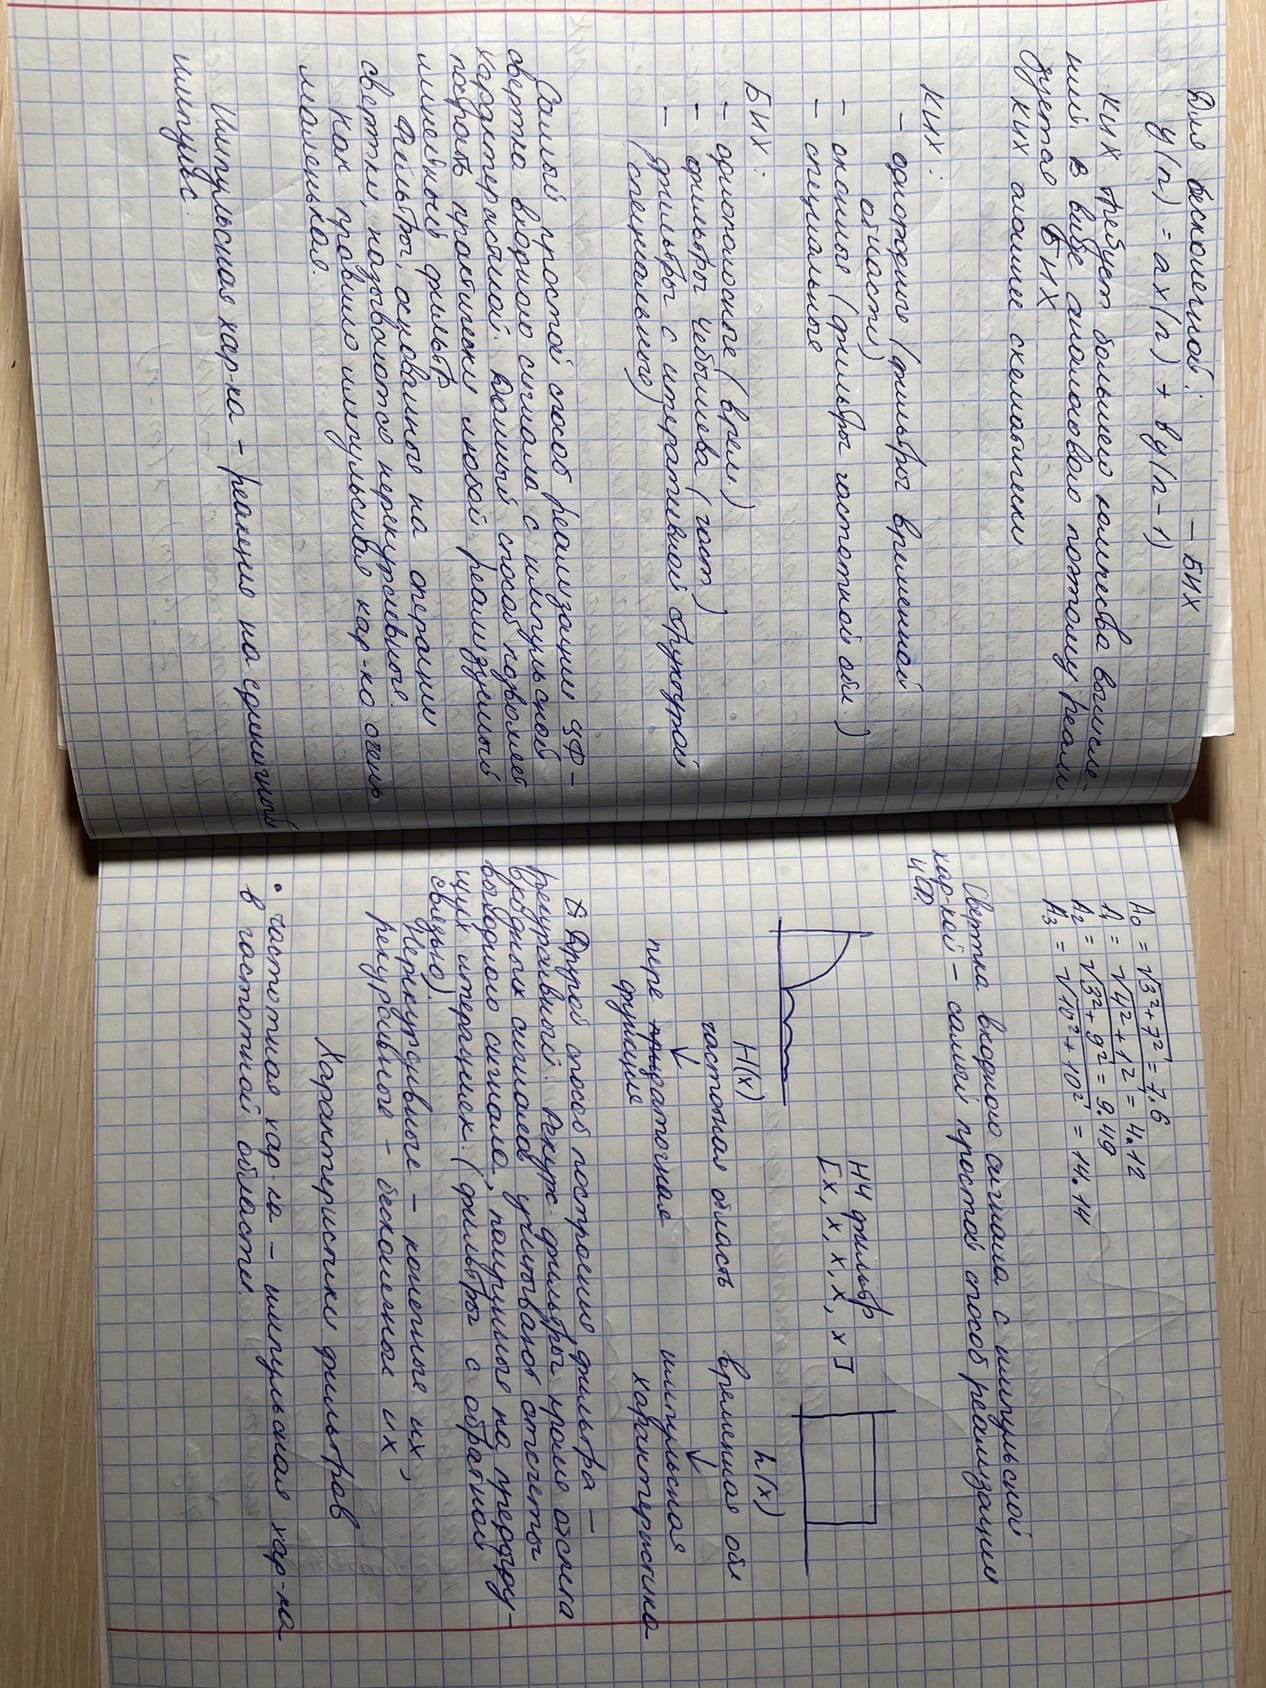 Для бесконечной: — БИХ
y(n) = ax(n) + by(n-1)
КИХ требует большего количества вычисле-
ний. В виде аналогового поэтому реали-
зуется БИХ
КИХ сложнее схематически
КИХ:
- однородные (фильтры временной
области)
- оконные (фильтры частотной обл.)
- специальные
БИХ:
- однополосные (врем.)
- фильтры Чебышева (част.)
- фильтры с итеративной структурой
(специальные)
Самый простой способ реализации ЦФ –
свертка входного сигнала с импульсной
характеристикой. Данный способ позволяет
построить практически любой реализуемый
линейный фильтр
Фильтры, основанные на операции
свертки, называются нерекурсивные.
Как правило импульсная хар-ка очень
маленькая.
Импульсная хар-ка – реакция на единичный
импульс.
A₀ = √3²+7² = 7.6
A₁ = √4²+1² = 4.12
A₂ = √3²+9² = 9.49
A₃ = √10²+10² = 14.14
Свертка входного сигнала с импульсной
хар-кой – самый простой способ реализации
ЦФ.
НЧ фильтр
[x, x, x, x, x]
H(x) h(x)
частотная область временная обл
пере даточная импульсная
функция характеристика
Другой способ построения фильтра –
рекурсивный. Рекурс. фильтры кроме отсчета
входных сигналов учитывают отсчеты
выходного сигнала, полученные на предыду-
щих итерациях. (фильтры с обратной
связью).
Нерекурсивные – конечные их,
рекурсивные – бесконечные их
Характеристики фильтров
• частотная хар-ка – импульсная хар-ка
в частотной области.